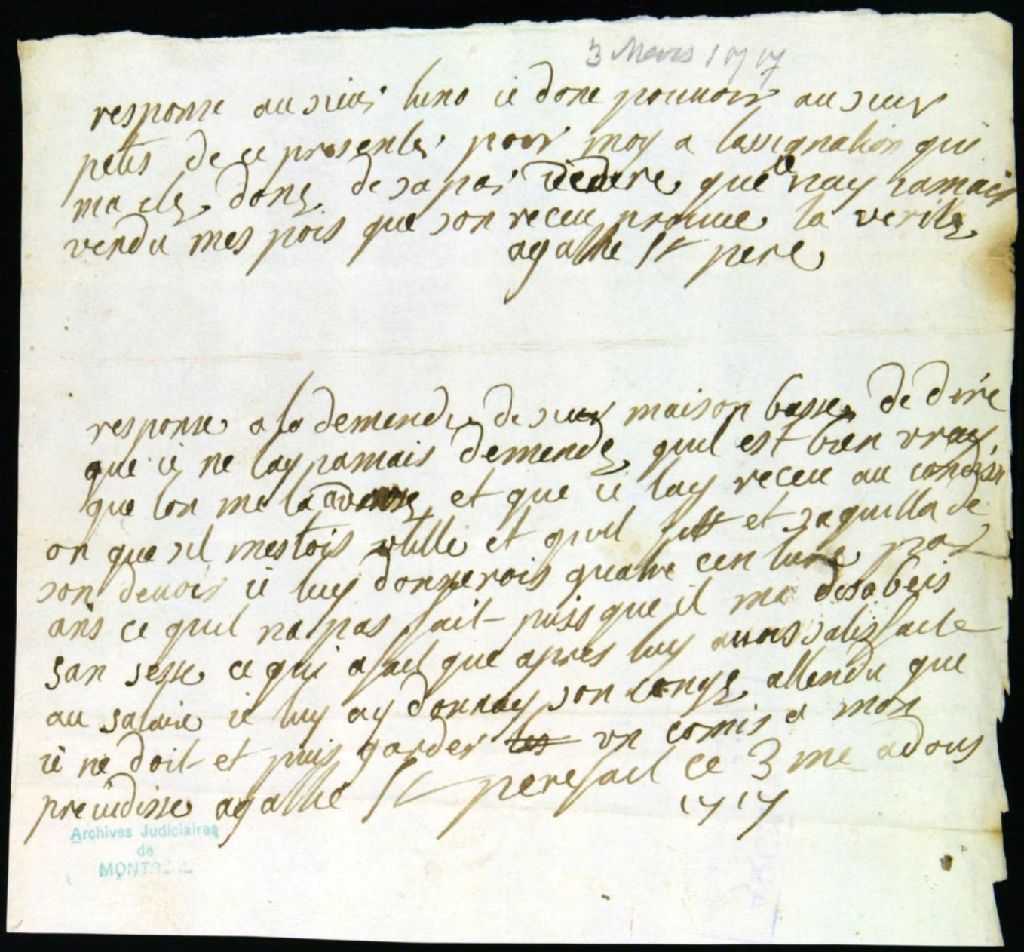 3 Mars 1717
response au sieur luno ie done pouvoir au sieur
petis de ce presenter pour moy a lassignation qui
ma ete donne de sa par dedire que ie nay jamais
vendu mes pois que son receu prouue la verite
agathe St pere
response a la demende de sieur maison basse de dire
que ie ne lay jamais demende quil est bien vray
que lon me la et que ie lay receu au condisi
on que sil mestois utille et quil fit et saquilla de
son devoir ie luy donnerois quatre cen livre par
ans ce quil na pas fait puis que il ma desobeis
san sesse ce qui a fait que apres luy auois satisfaite
au salaire ie luy ay donnay son conge attendu que
ie ne doit et puis garder un comis a mon
preiudisse agathe St pere fait ce 3 me a dous
1717
Archives Judiciaires
de
MONTREAL